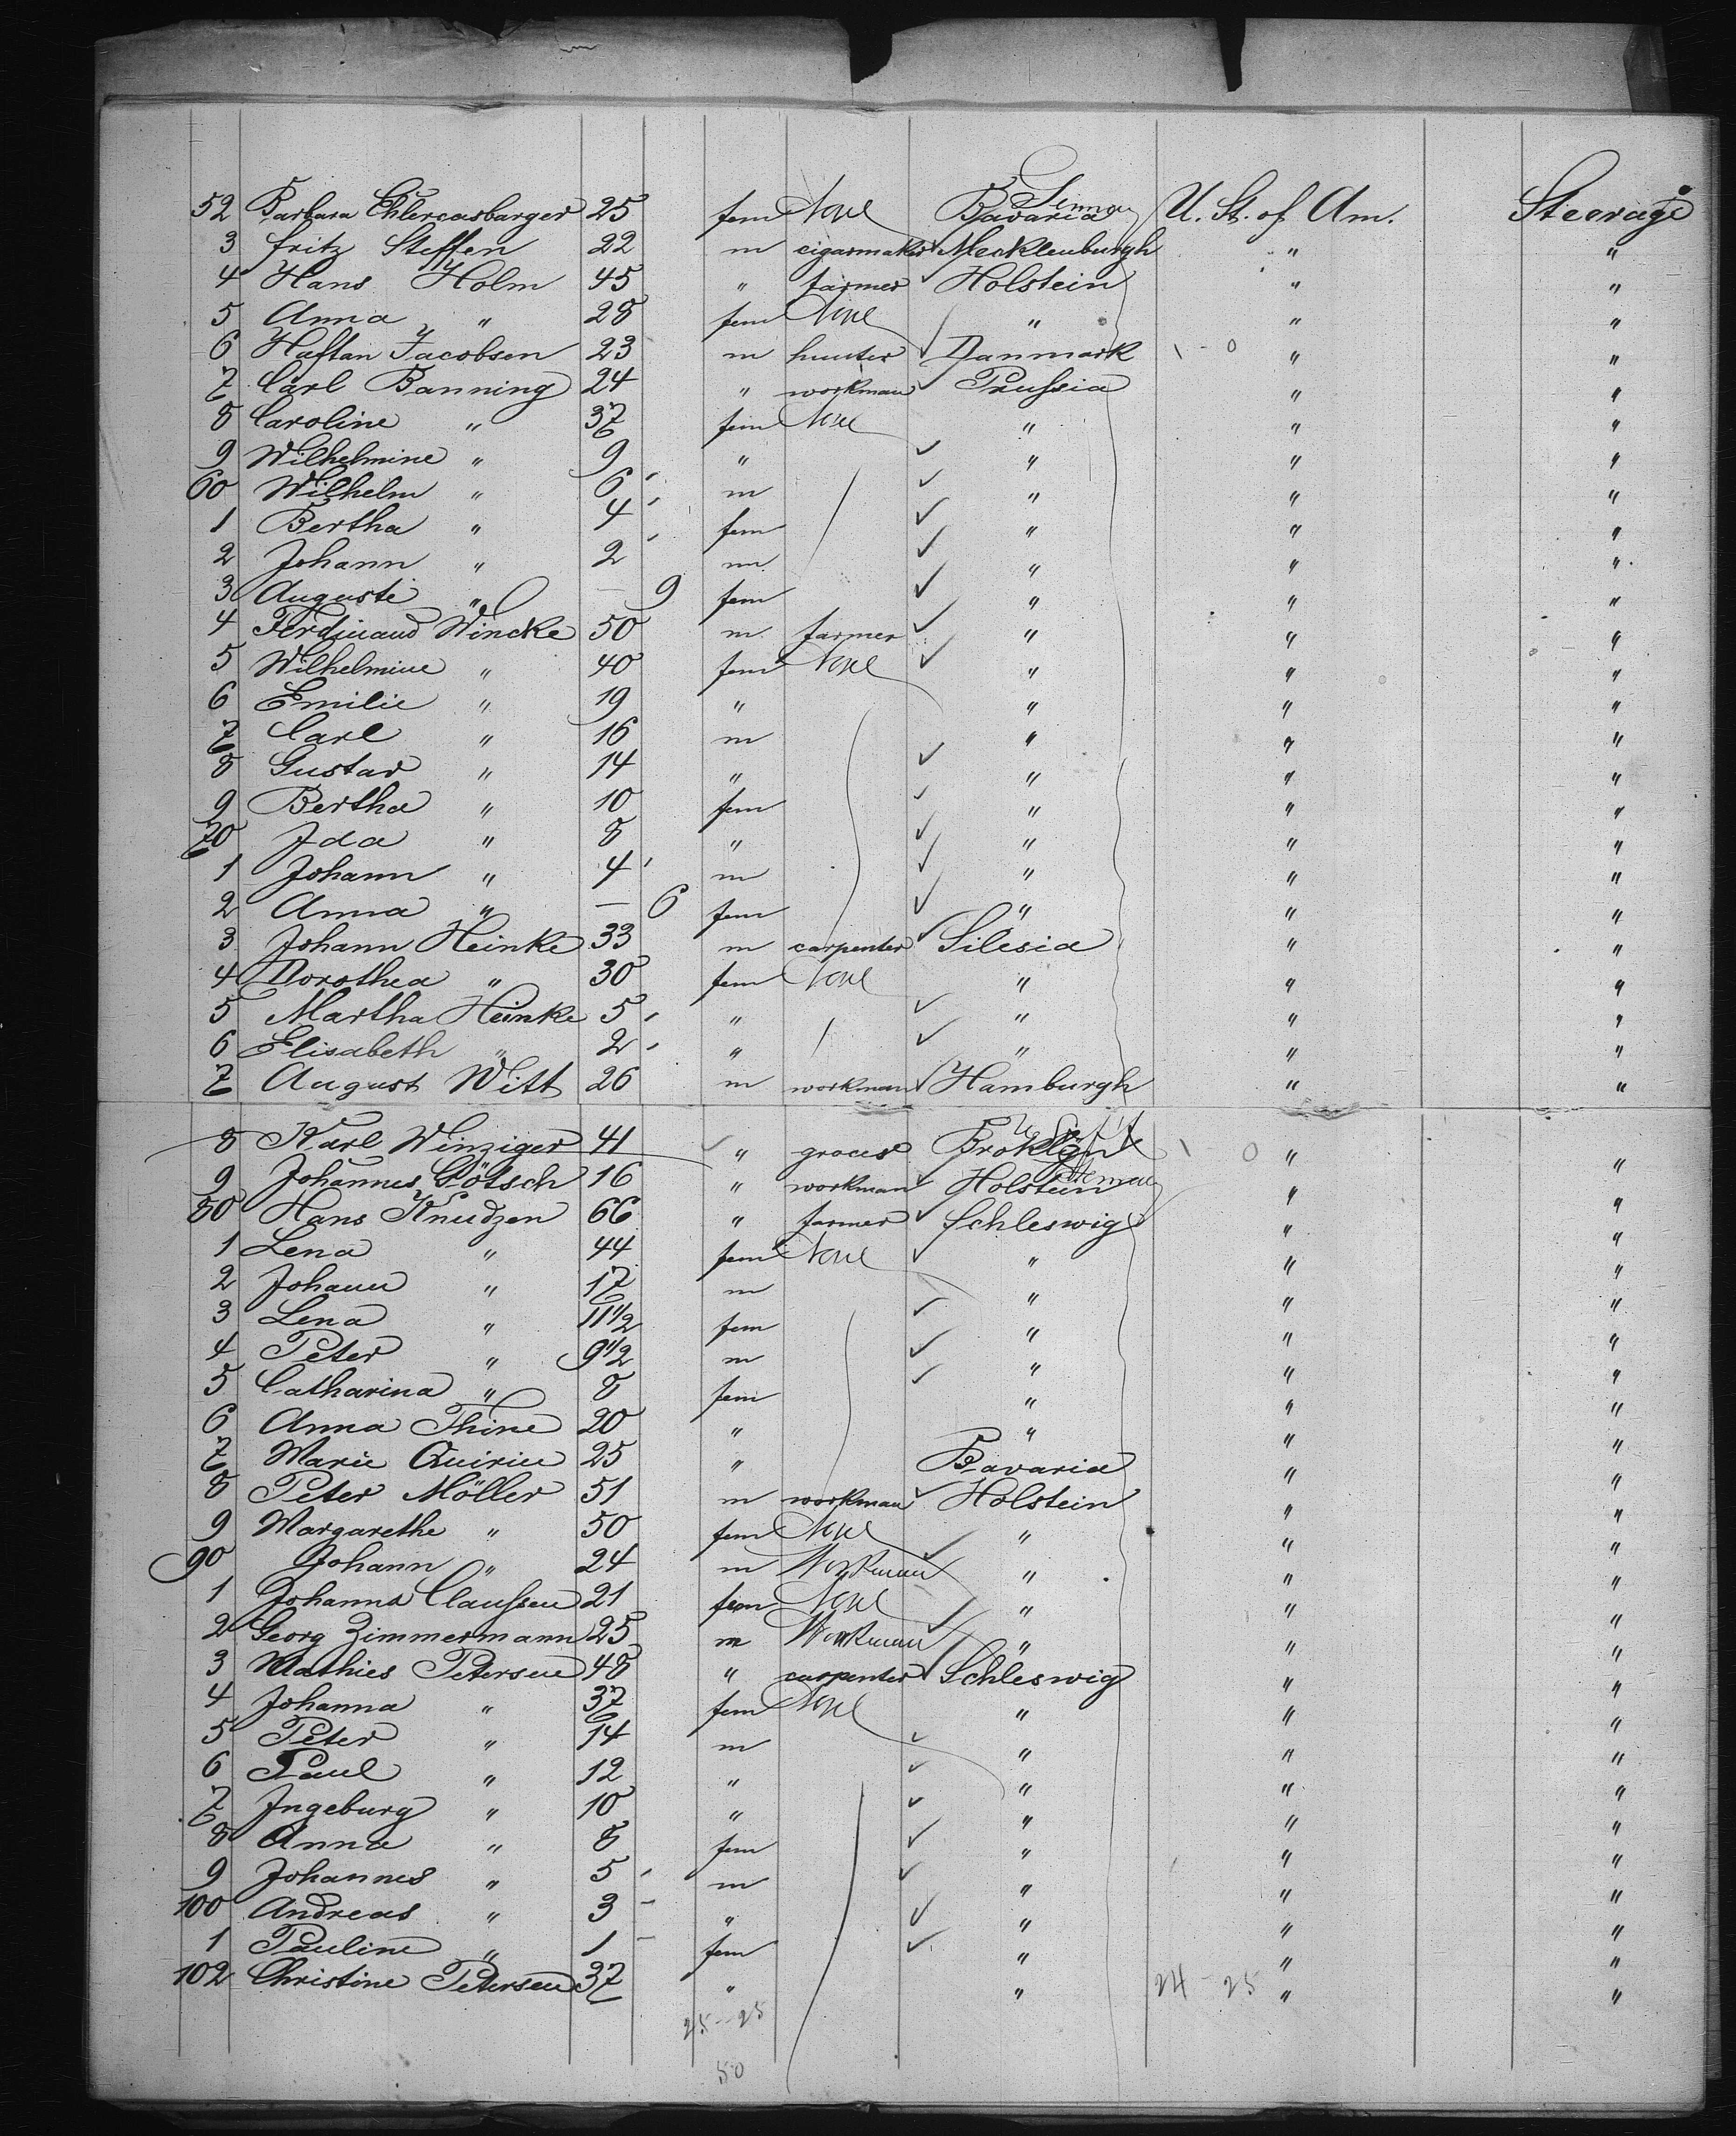 52 Barbara Ehlercasbarger 25 fem None Bavaria Germany U. St. of Am. Steerage
3 Fritz Steffen 22 m cigarmaker Mecklenburgh " "
4 Hans Holm 45 " farmer Holstein " "
5 Anna " 28 fem None " " "
6 Haftan Jacobsen 23 m hunter Danmark 1 - 0 " "
7 Carl Banning 24 " workman Prussia " "
8 Caroline " 37 fem None " " "
9 Wilhelmine " 9 " " " "
60 Wilhelm " 6 m " " "
1 Bertha " 4 fem " " "
2 Johann " 2 m " " "
3 Auguste " — 9 fem " " "
4 Ferdinand Wincke 50 m farmer " " "
5 Wilhelmine " 40 fem None " " "
6 Emilie " 19 " " " "
7 Carl " 16 m " " "
8 Gustav " 14 " " " "
9 Bertha " 10 fem " " "
70 Ida " 8 " " " "
1 Johann " 4 m " " "
2 Anna " — 6 fem " " "
3 Johann Heinke 33 m carpenter Silesia " "
4 Dorothea " 30 fem None " " "
5 Martha Heinke 5 " " " "
6 Elisabeth " 2 " " " "
7 August Witt 26 m workman Hamburgh " "
8 Karl Winziger 41 " grocer Broklyn 1 0 " "
9 Johannes Götsch 16 " workman Holstein " "
80 Hans Knudzen 66 " farmer Schleswig " "
1 Lena " 44 fem None " " "
2 Johann " 17 m " " "
3 Lena " 11 1/2 fem " " "
4 Peter " 9 1/2 m " " "
5 Catharina " 8 fem " " "
6 Anna Thine 20 " " " "
7 Marie Quirin 25 " Bavaria " "
8 Peter Möller 51 m workman Holstein " "
9 Margarethe " 50 fem None " " "
90 Johann " 24 m Workman " " "
1 Johanna Claussen 21 fem None " " "
2 Georg Zimmermann 25 m Workman " " "
3 Mathies Petersen 48 " carpenter Schleswig " "
4 Johanna " 37 fem None " " "
5 Peter " 14 m " " "
6 Paul " 12 " " " "
7 Ingeburg " 10 " " " "
8 Anna " 8 fem " " "
9 Johannes " 5 m " " "
100 Andreas " 3 " " " "
1 Pauline " 1 fem " " "
102 Christine Petersen 37 " " 24 - 25 " "
25 - 25
50